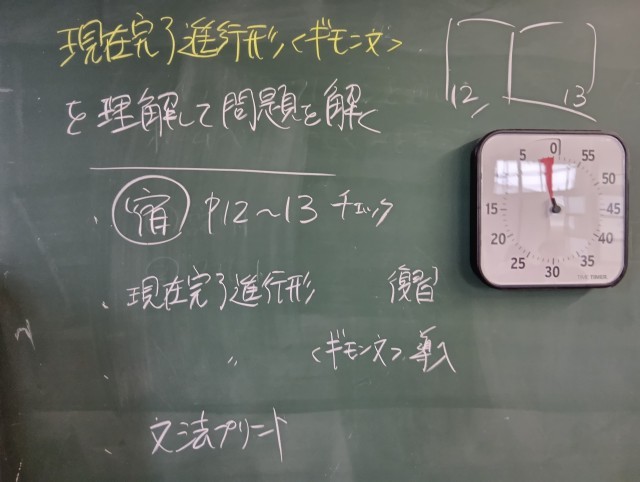 現在完了進行形<ギモン文>
を理解して問題を解く
12 13
宿 P12～13 チェック
現在完了進行形 復習
〃 <ギモン文> 導入
文法プリント
0 55 50 45 40 35 30 25 20 15 5
TIME TIMER